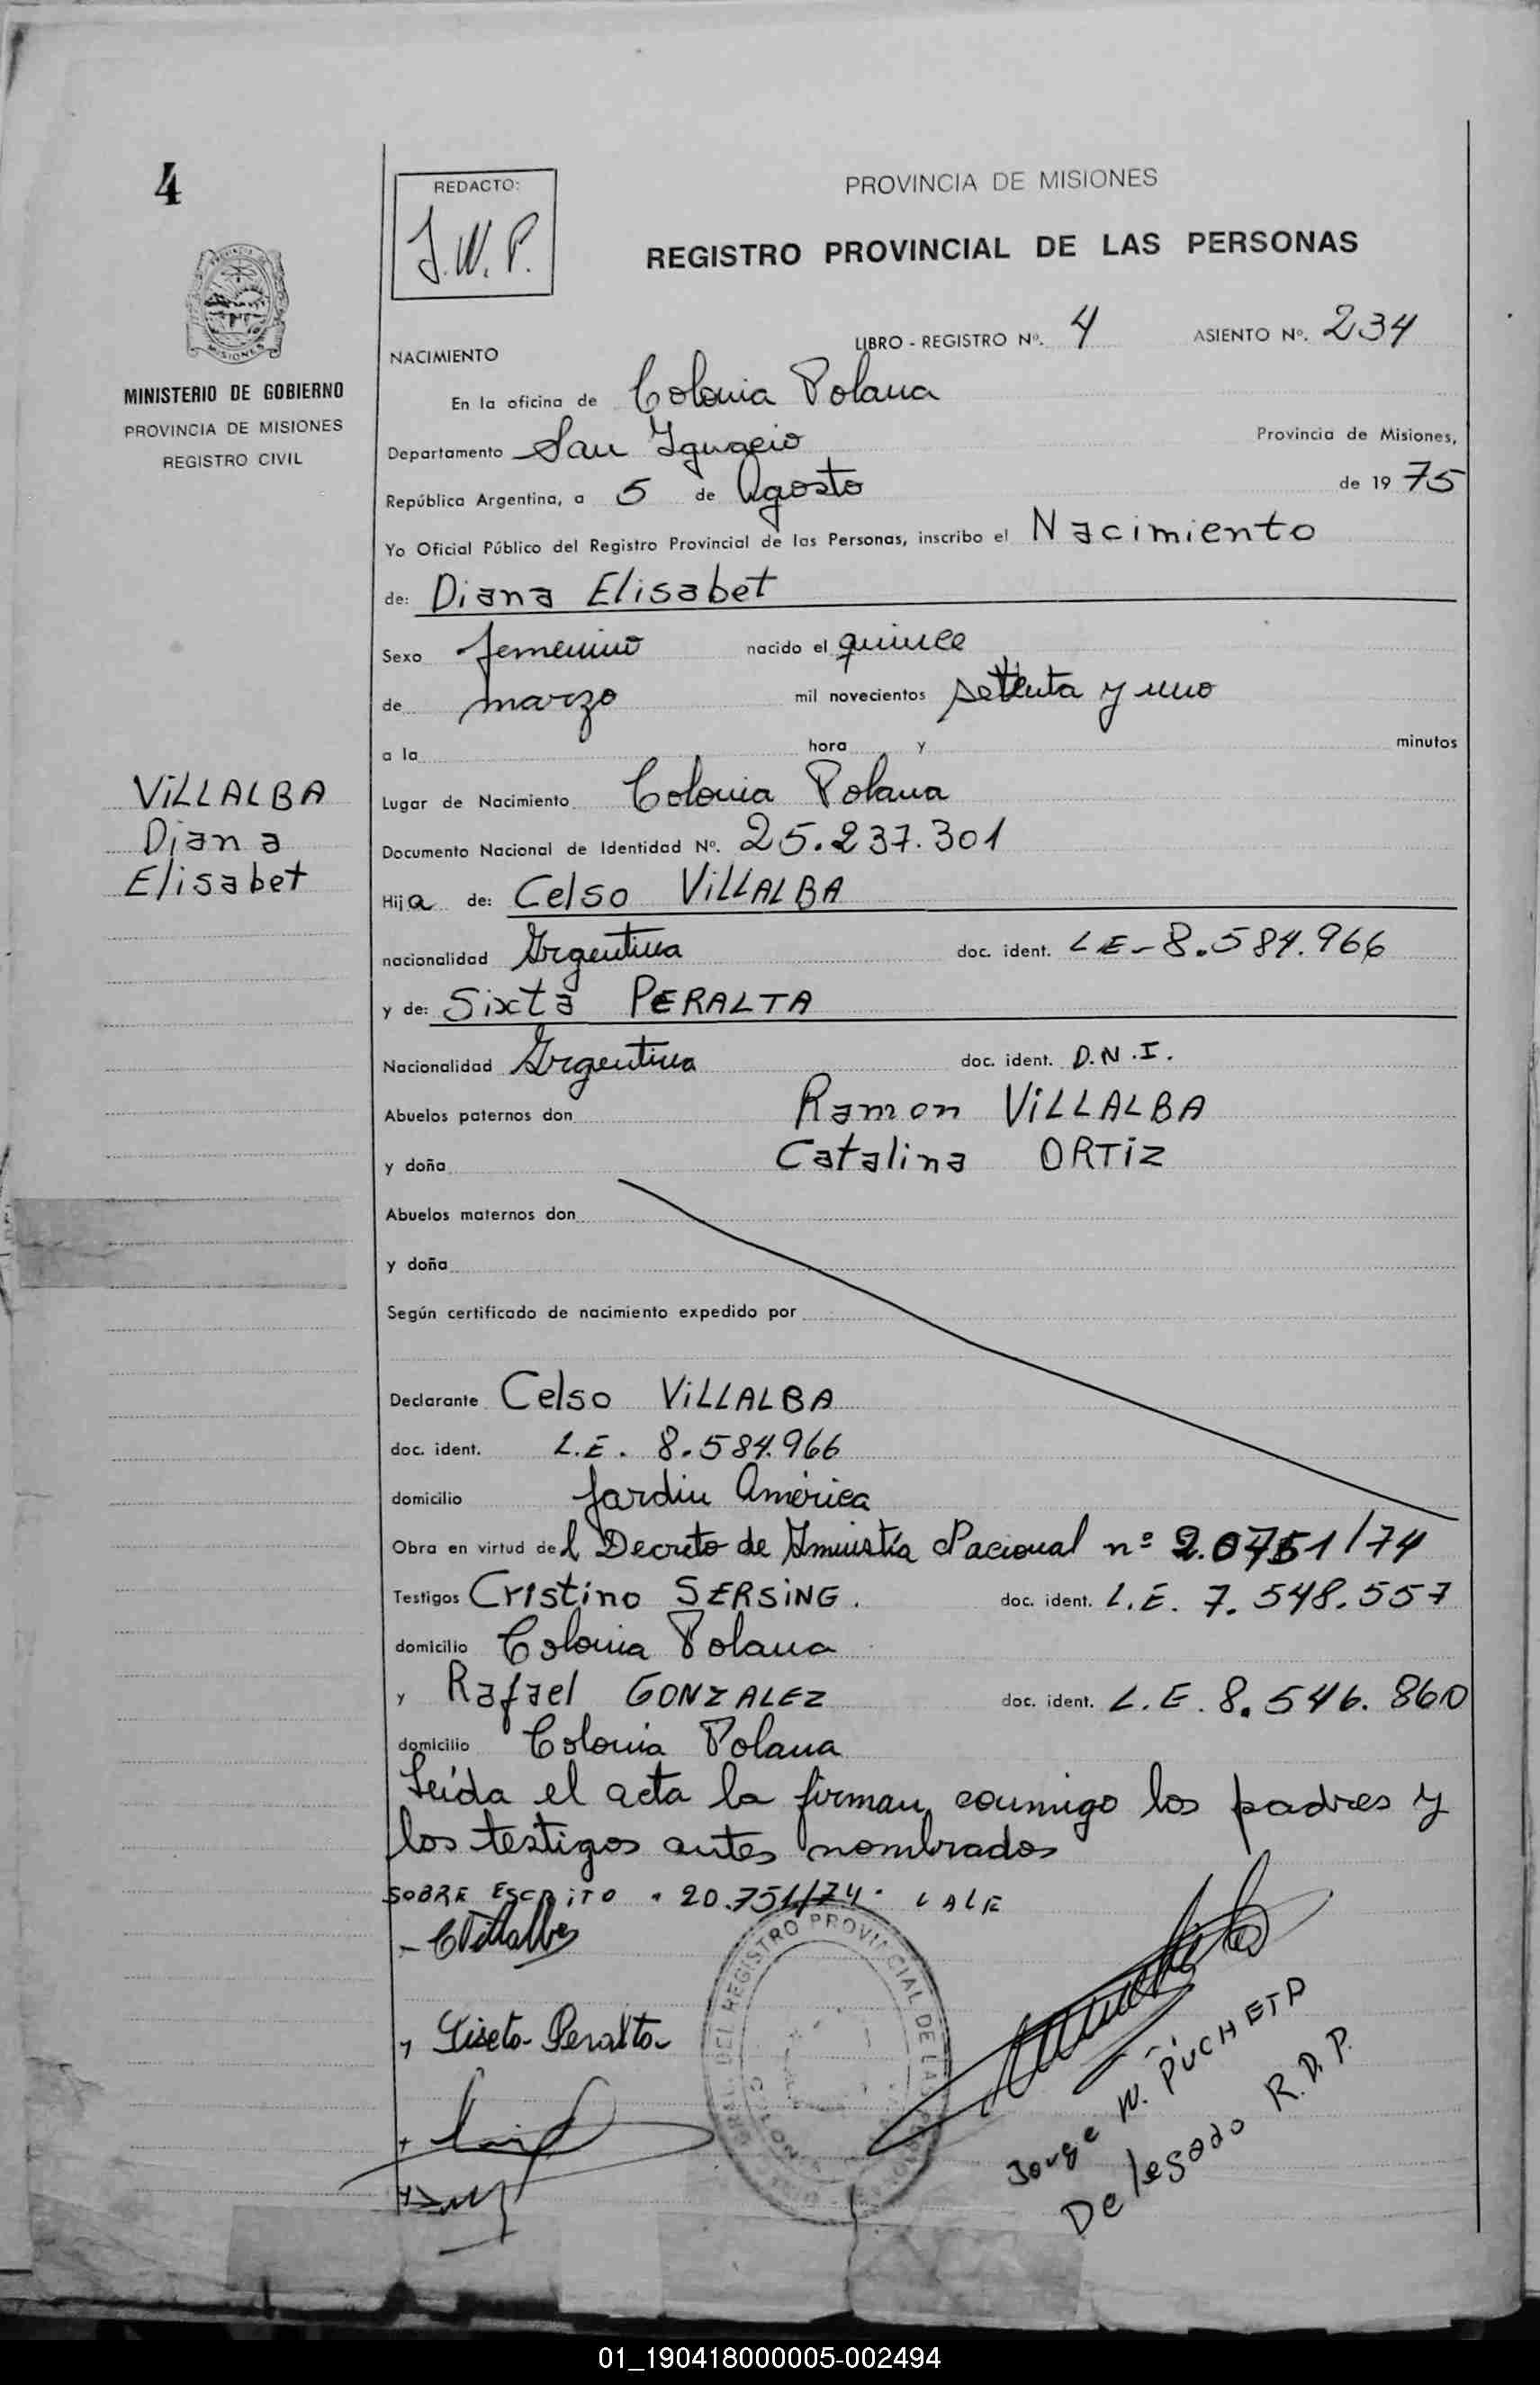 4
REDACTO:
J.W.P.
PROVINCIA DE MISIONES
REGISTRO PROVINCIAL DE LAS PERSONAS
MISIONES
MINISTERIO DE GOBIERNO
PROVINCIA DE MISIONES
REGISTRO CIVIL
LIBRO - REGISTRO Nº. 4 ASIENTO Nº. 234
NACIMIENTO
En la oficina de Colonia Polana
Departamento San Ignacio Provincia de Misiones,
República Argentina, a 5 de Agosto de 1975
Yo Oficial Público del Registro Provincial de las Personas, inscribo el Nacimiento
de: Diana Elisabet
Sexo femenino nacido el quince
de marzo mil novecientos setenta y uno
a la hora y minutos
VILLALBA
Diana
Elisabet
Lugar de Nacimiento Colonia Polana
Documento Nacional de Identidad Nº. 25.237.301
Hija de: Celso VILLALBA
nacionalidad Argentina doc. ident. LE-8.584.966
y de: Sixta PERALTA
Nacionalidad Argentina doc. ident. D.N.I.
Abuelos paternos don Ramon VILLALBA
y doña Catalina ORTIZ
Abuelos maternos don
y doña
Según certificado de nacimiento expedido por
Declarante Celso VILLALBA
doc. ident. L.E. 8.584.966
domicilio Jardin América
Obra en virtud del Decreto de Amnistía Nacional nº 20751/74
Testigos Cristino SERSING. doc. ident. L.E. 7.548.557
domicilio Colonia Polana
y Rafael GONZALEZ doc. ident. L.E. 8.546.860
domicilio Colonia Polana
Leída el acta la firman conmigo los padres y
los testigos antes nombrados
SOBRE ESCRITO "20.751/74" VALE
- CVillalba
Sixta Peralta
DEL REGISTRO PROVINCIAL DE LAS
Jorge W. PUCHETA
Delegado R.D.P.
01_190418000005-002494